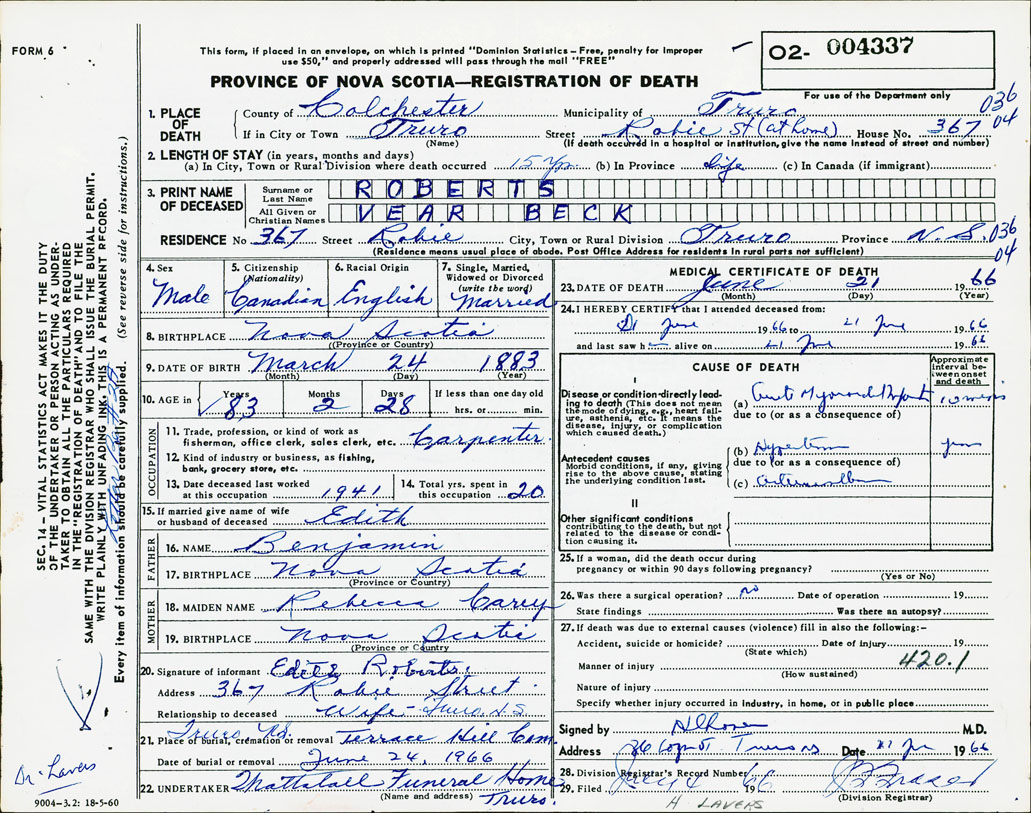 FORM 6
This form, if placed in an envelope, on which is printed "Dominion Statistics – Free, penalty for improper
use $50," and properly addressed will pass through the mail "FREE"
PROVINCE OF NOVA SCOTIA—REGISTRATION OF DEATH
O2- 004337
For use of the Department only
036
04
1. PLACE OF DEATH County of Colchester Municipality of Truro
If in City or Town Truro Street Robie St (at home) House No. 367
(Name) (If death occurred in a hospital or institution, give the name instead of street and number)
2. LENGTH OF STAY (in years, months and days)
(a) In City, Town or Rural Division where death occurred 15 yrs (b) In Province life (c) In Canada (if immigrant)
3. PRINT NAME OF DECEASED Surname or Last Name ROBERTS
All Given or Christian Names VEAR BECK
RESIDENCE No 367 Street Robie City, Town or Rural Division Truro Province N.S. 036
04
(Residence means usual place of abode. Post Office Address for residents in rural parts not sufficient)
4. Sex Male
5. Citizenship (Nationality) Canadian
6. Racial Origin English
7. Single, Married, Widowed or Divorced (write the word) Married
8. BIRTHPLACE Nova Scotia
(Province or Country)
9. DATE OF BIRTH March 24 1883
(Month) (Day) (Year)
10. AGE in Years 83 Months 2 Days 28 If less than one day old
hrs. or min.
OCCUPATION
11. Trade, profession, or kind of work as
fisherman, office clerk, sales clerk, etc. Carpenter
12. Kind of industry or business, as fishing,
bank, grocery store, etc.
13. Date deceased last worked
at this occupation 1941
14. Total yrs. spent in
this occupation 20
15. If married give name of wife
or husband of deceased Edith
FATHER
16. NAME Benjamin
17. BIRTHPLACE Nova Scotia
(Province or Country)
MOTHER
18. MAIDEN NAME Rebecca Carey
19. BIRTHPLACE Nova Scotia
(Province or Country)
20. Signature of informant Edith Roberts
Address 367 Robie Street
Relationship to deceased Wife - Truro, N.S.
Truro N.S.
21. Place of burial, cremation or removal Terrace Hill Cem
Date of burial or removal June 24, 1966
22 UNDERTAKER Mattatall Funeral Home
(Name and address) Truro.
MEDICAL CERTIFICATE OF DEATH
23. DATE OF DEATH June 21 1966
(Month) (Day) (Year)
24. I HEREBY CERTIFY that I attended deceased from:
21 June 1966 to 21 June 1966
and last saw h alive on 21 June 1966
CAUSE OF DEATH
Approximate interval between onset and death
I
Disease or condition directly leading to death (This does not mean
the mode of dying, e.g., heart failure, asthenia, etc. It means the
disease, injury, or complication
which caused death.)
(a) Acute Myocardial Infarct
due to (or as a consequence of)
Antecedent causes
Morbid conditions, if any, giving
rise to the above cause, stating
the underlying condition last.
(b) Hypertension years
due to (or as a consequence of)
(c)
II
Other significant conditions
contributing to the death, but not
related to the disease or condition causing it.
25. If a woman, did the death occur during
pregnancy or within 90 days following pregnancy?
(Yes or No)
26. Was there a surgical operation? no Date of operation 19
State findings Was there an autopsy?
27. If death was due to external causes (violence) fill in also the following:–
Accident, suicide or homicide? Date of Injury 19
(State which)
Manner of injury 420.1
(How sustained)
Nature of injury
Specify whether injury occurred in Industry, in home, or in public place
Signed by M.D.
Address Truro NS Date 21 June 1966
28. Division Registrar's Record Number
29. Filed 66 19
(Division Registrar)
H LAVERS
SEC. 14 – VITAL STATISTICS ACT MAKES IT THE DUTY
OF THE UNDERTAKER OR PERSON ACTING AS UNDERTAKER TO OBTAIN ALL THE PARTICULARS REQUIRED
IN THE "REGISTRATION OF DEATH" AND TO FILE THE
SAME WITH THE DIVISION REGISTRAR WHO SHALL ISSUE THE BURIAL PERMIT.
WRITE PLAINLY WITH UNFADING INK. THIS IS A PERMANENT RECORD.
Every item of information should be carefully supplied. (See reverse side for instructions.)
Dr. Lavers
9004-3.2: 18-5-60